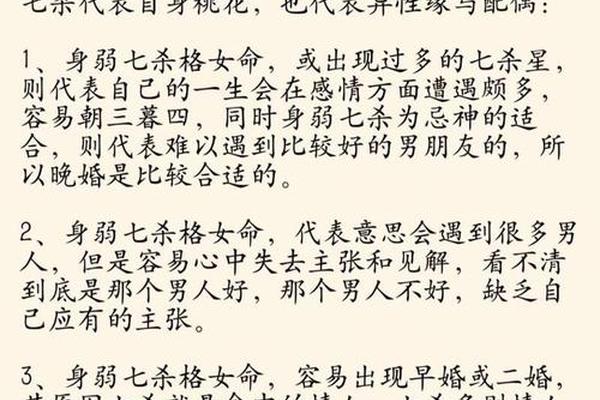 七杀代表自身桃花，也代表异性缘与配偶：
1、身弱七杀格女命，或出现过多的七杀星，
则代表自己的一生会在感情方面遭遇颇多，
容易朝三暮四，同时身弱七杀为忌神的适
合，则代表难以遇到比较好的男朋友的，所
以晚婚是比较合适的。
2、身弱七杀格女命，代表意思会遇到很多男
人，但是容易心中失去主张和见解，看不清
到底是那个男人好，那个男人不好，缺乏自
己应有的主张。
3、身弱七杀格女命，容易出现早婚或二婚，
其原因七杀就是命中的情人，七杀多则情人